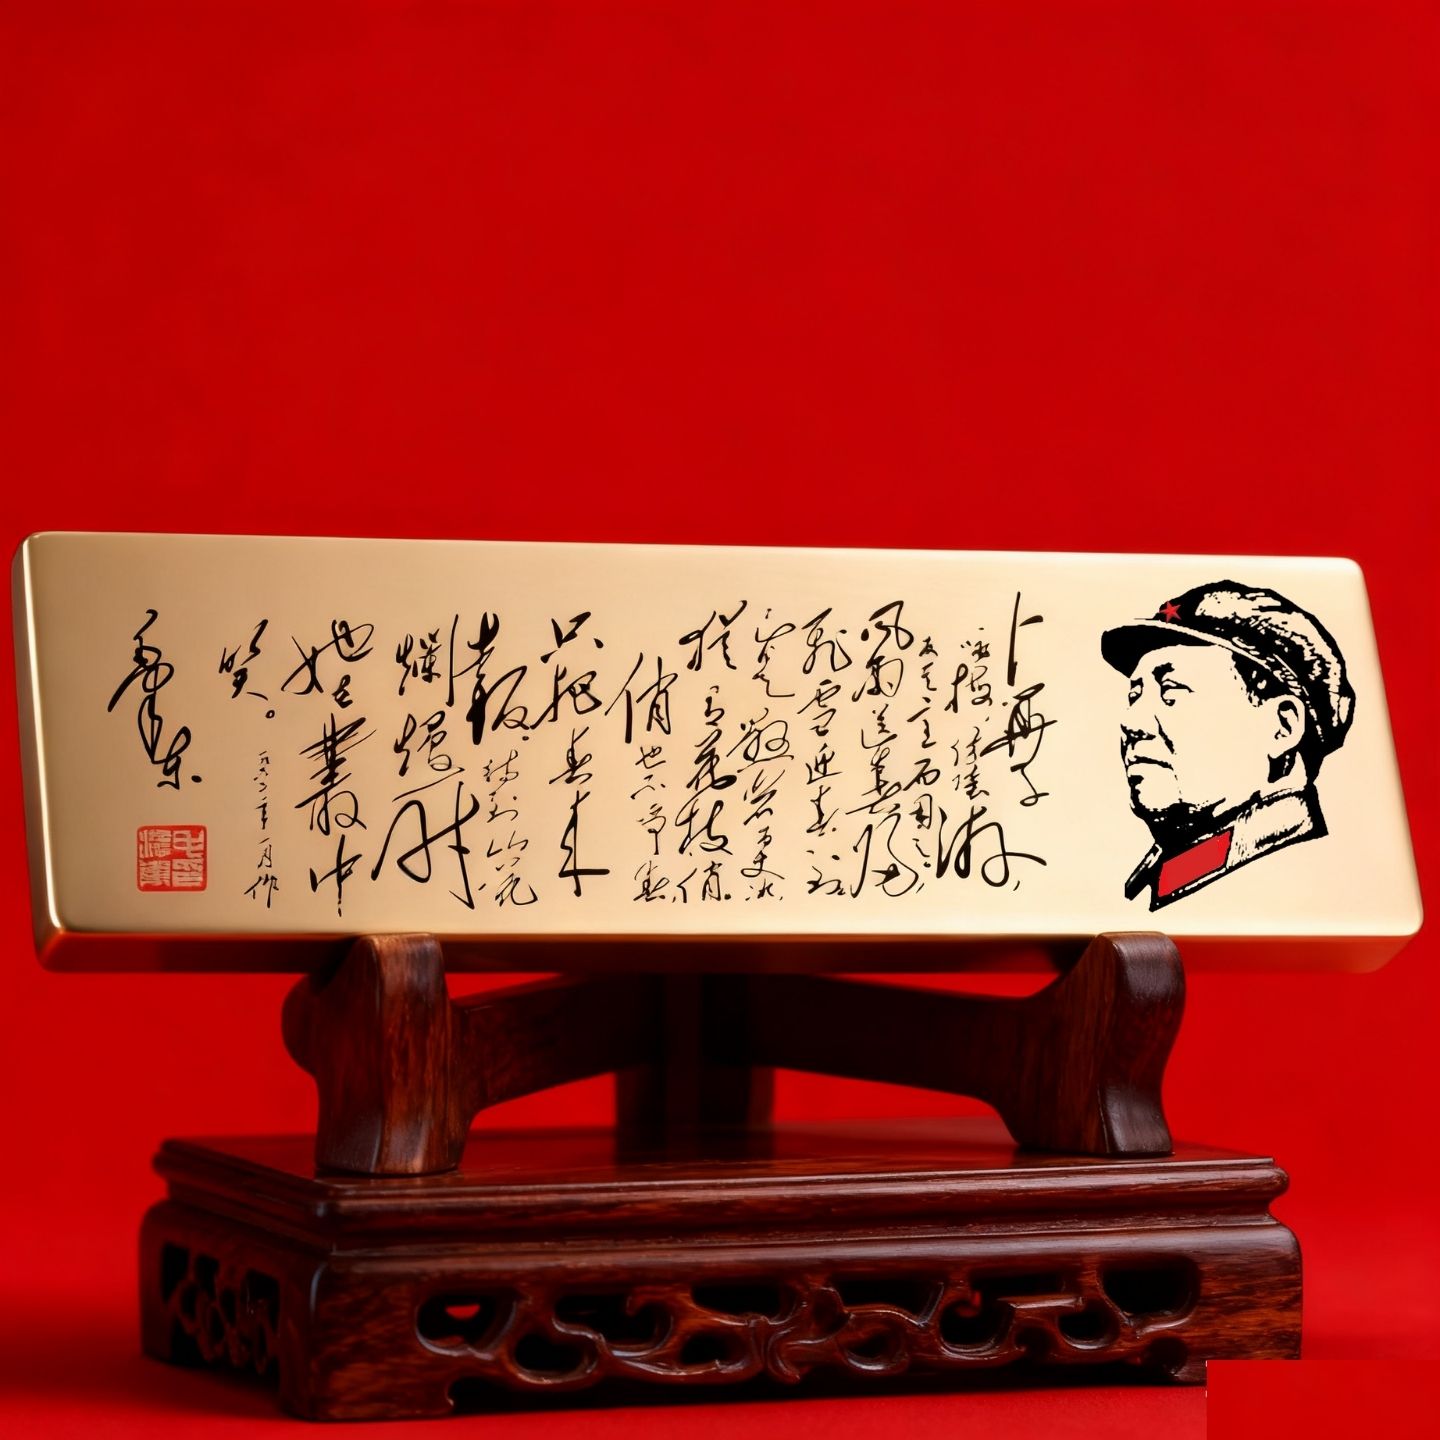 卜算子
咏梅,陆游,
反其意而用之,
风雨送春归,
飞雪迎春到。
已是悬岩百丈冰,
犹有花枝俏。
俏也不争春,
只把春来
报。待到山花
烂熳时,
她在丛中
笑。
一九六二年一月作
毛泽东